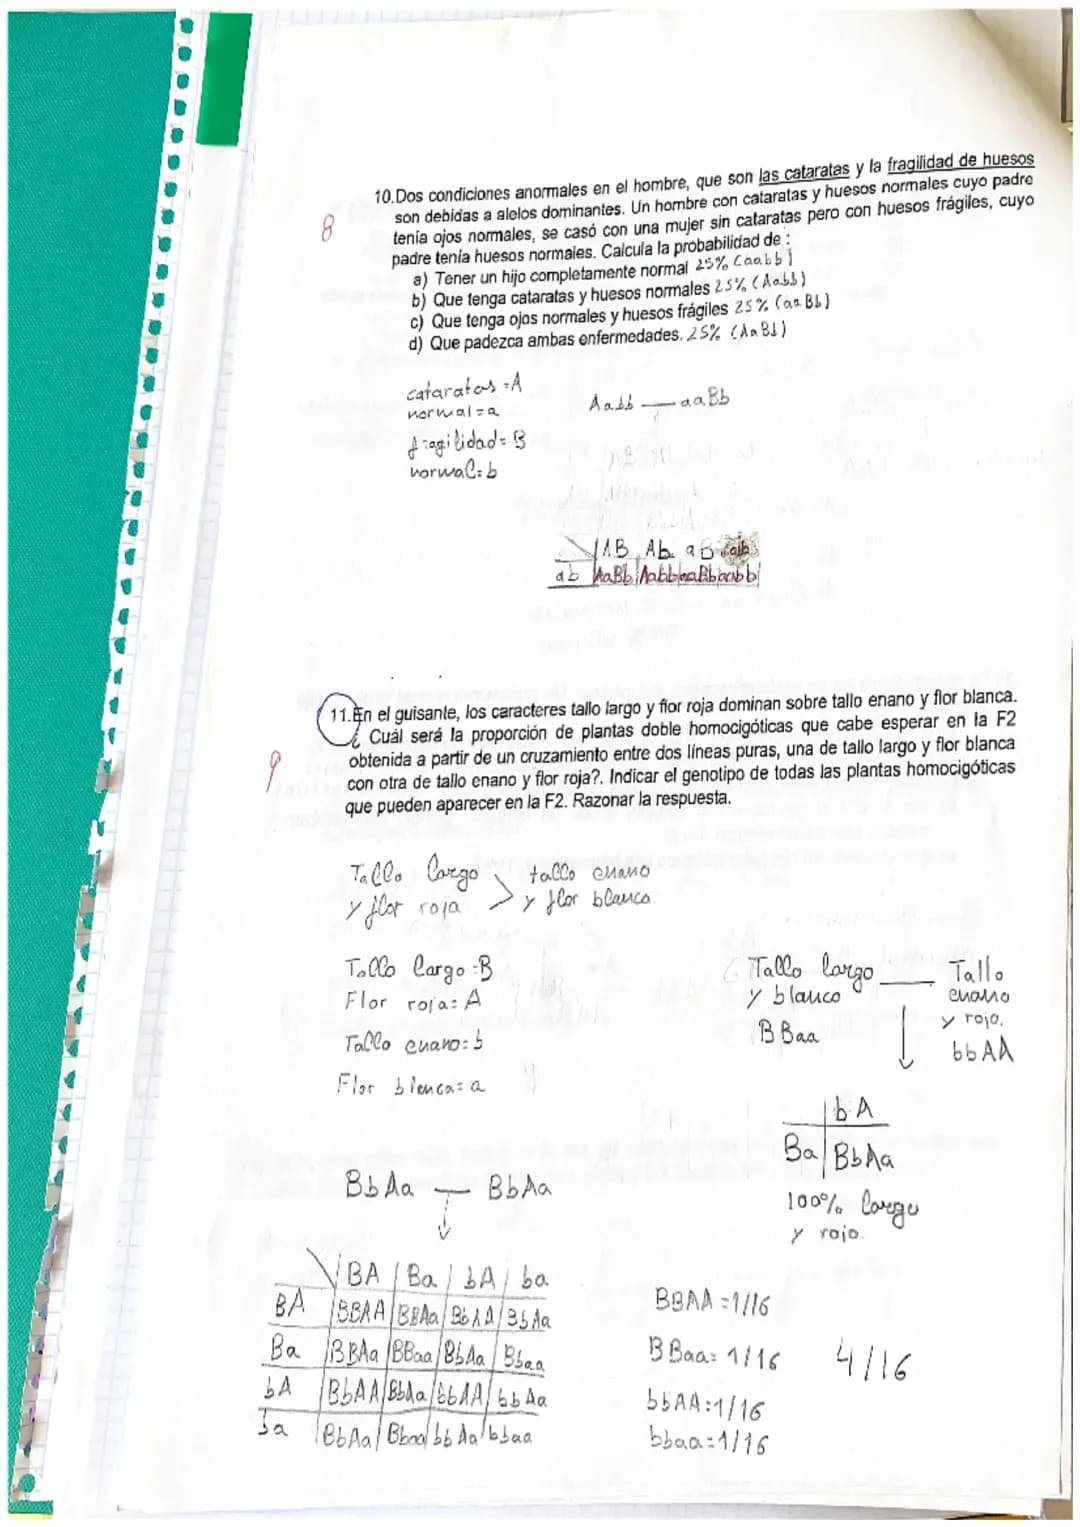 10.Dos condiciones anormales en el hombre, que son las cataratas y la fragilidad de huesos
son debidas a alelos dominantes. Un hombre con cataratas y huesos normales cuyo padre
tenía ojos normales, se casó con una mujer sin cataratas pero con huesos frágiles, cuyo
padre tenía huesos normales. Calcula la probabilidad de :
8
a) Tener un hijo completamente normal 25% (aabb)
b) Que tenga cataratas y huesos normales 25% (Aabb)
c) Que tenga ojos normales y huesos frágiles 25% (aaBb)
d) Que padezca ambas enfermedades. 25% (AaBb)
cataratas = A
normal = a
Aabb — aaBb
fragilidad = B
normal = b
AB Ab aB ab
ab AaBb Aabb aaBb aabb
11.En el guisante, los caracteres tallo largo y flor roja dominan sobre tallo enano y flor blanca.
¿ Cuál será la proporción de plantas doble homocigóticas que cabe esperar en la F2
obtenida a partir de un cruzamiento entre dos líneas puras, una de tallo largo y flor blanca
9
con otra de tallo enano y flor roja?. Indicar el genotipo de todas las plantas homocigóticas
que pueden aparecer en la F2. Razonar la respuesta.
Tallo largo > tallo enano
y flor roja y flor blanca.
Tallo largo = B
Flor roja: A
Tallo enano: b
Flor blanca = a
Tallo largo — Tallo
y blanco enano
y rojo.
BBaa bbAA
bA
Ba BbAa
100% largo
y rojo.
BbAa — BbAa
BA Ba bA ba
BA BBAA BBAa BbAA BbAa
Ba BBAa BBaa BbAa Bbaa
bA BbAA BbAa bbAA bbAa
ba BbAa Bbaa bbAa bbaa
BBAA = 1/16
BBaa = 1/16
4/16
bbAA = 1/16
bbaa = 1/16